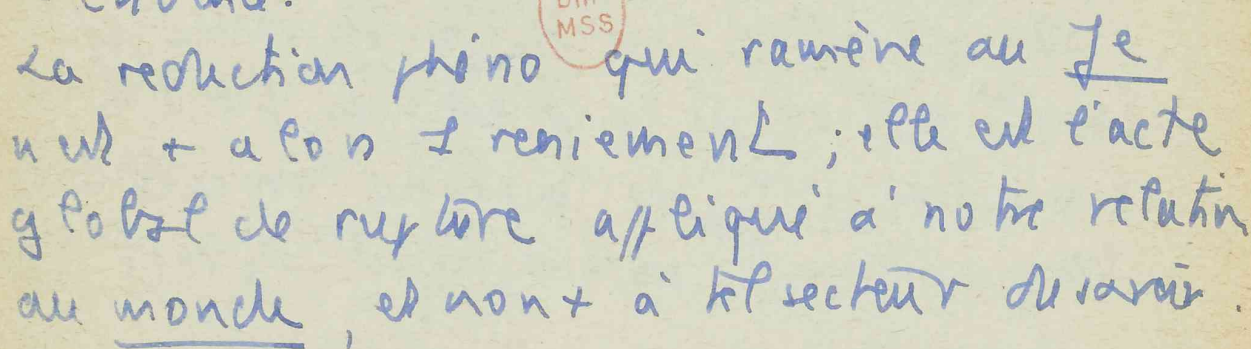 BIB
MSS
La reduction phéno qui ramène au Je
n'est + alors 1 reniement ; elle est l'acte
global de rupture appliqué à notre relation
au monde, et non + à tel secteur du savoir.